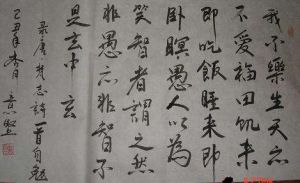 我不樂生天亦
不愛福田飢来
即吃飯睡来即
卧瞑愚人以為
笑智者謂之然
非愚亦非智不
是玄中玄
录唐梵志詩一首自勉
己丑年春月